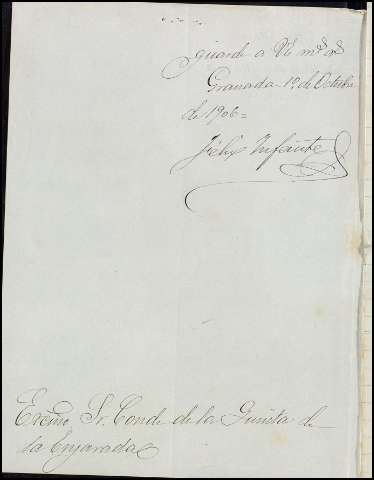 guarde a VE m.s a.s
Granada 1º de Octubre
de 1906=
Felix Infante
Excmo Sr. Conde de la Quinta de
la Enjarada